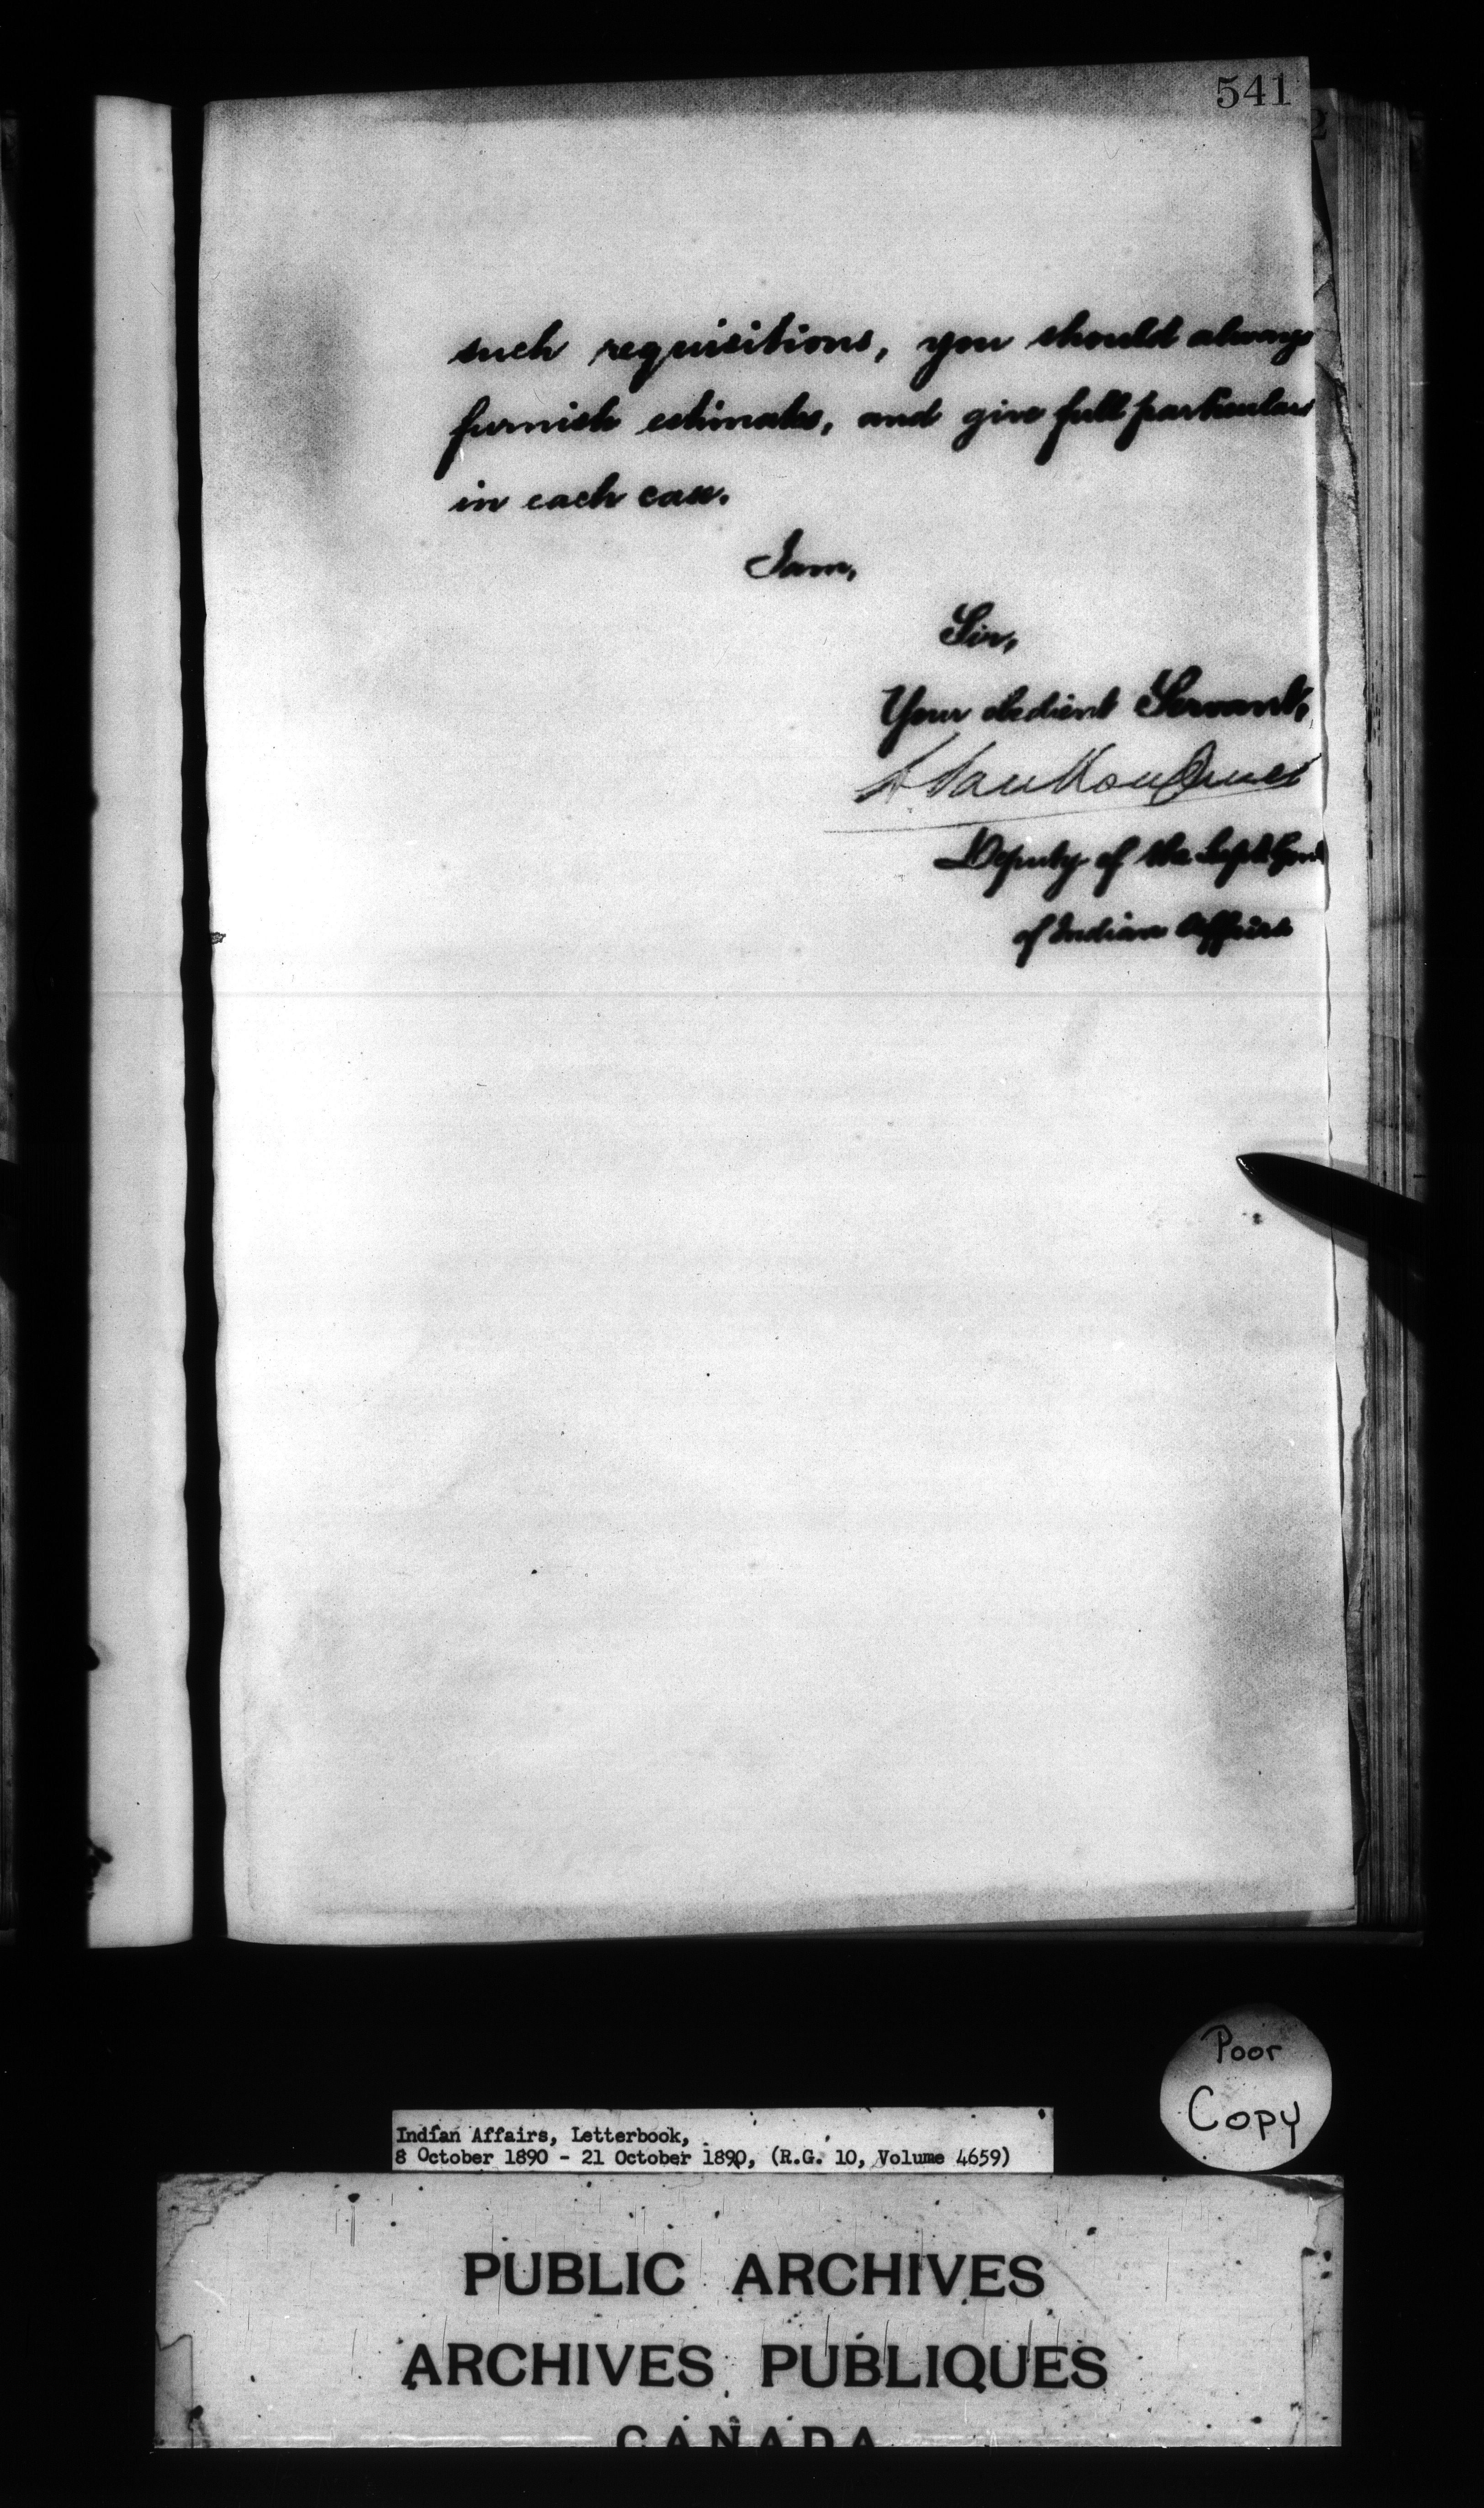 541
such requisitions, you should always
furnish estimates, and give full particulars
in each case.
I am,
Sir,
Your obedient Servant,
L Vankoughnet
Deputy of the Supt. Genl
of Indian Affairs
Poor
Copy
Indian Affairs, Letterbook,
8 October 1890 - 21 October 1890, (R.G. 10, Volume 4659)
PUBLIC ARCHIVES
ARCHIVES PUBLIQUES
CANADA